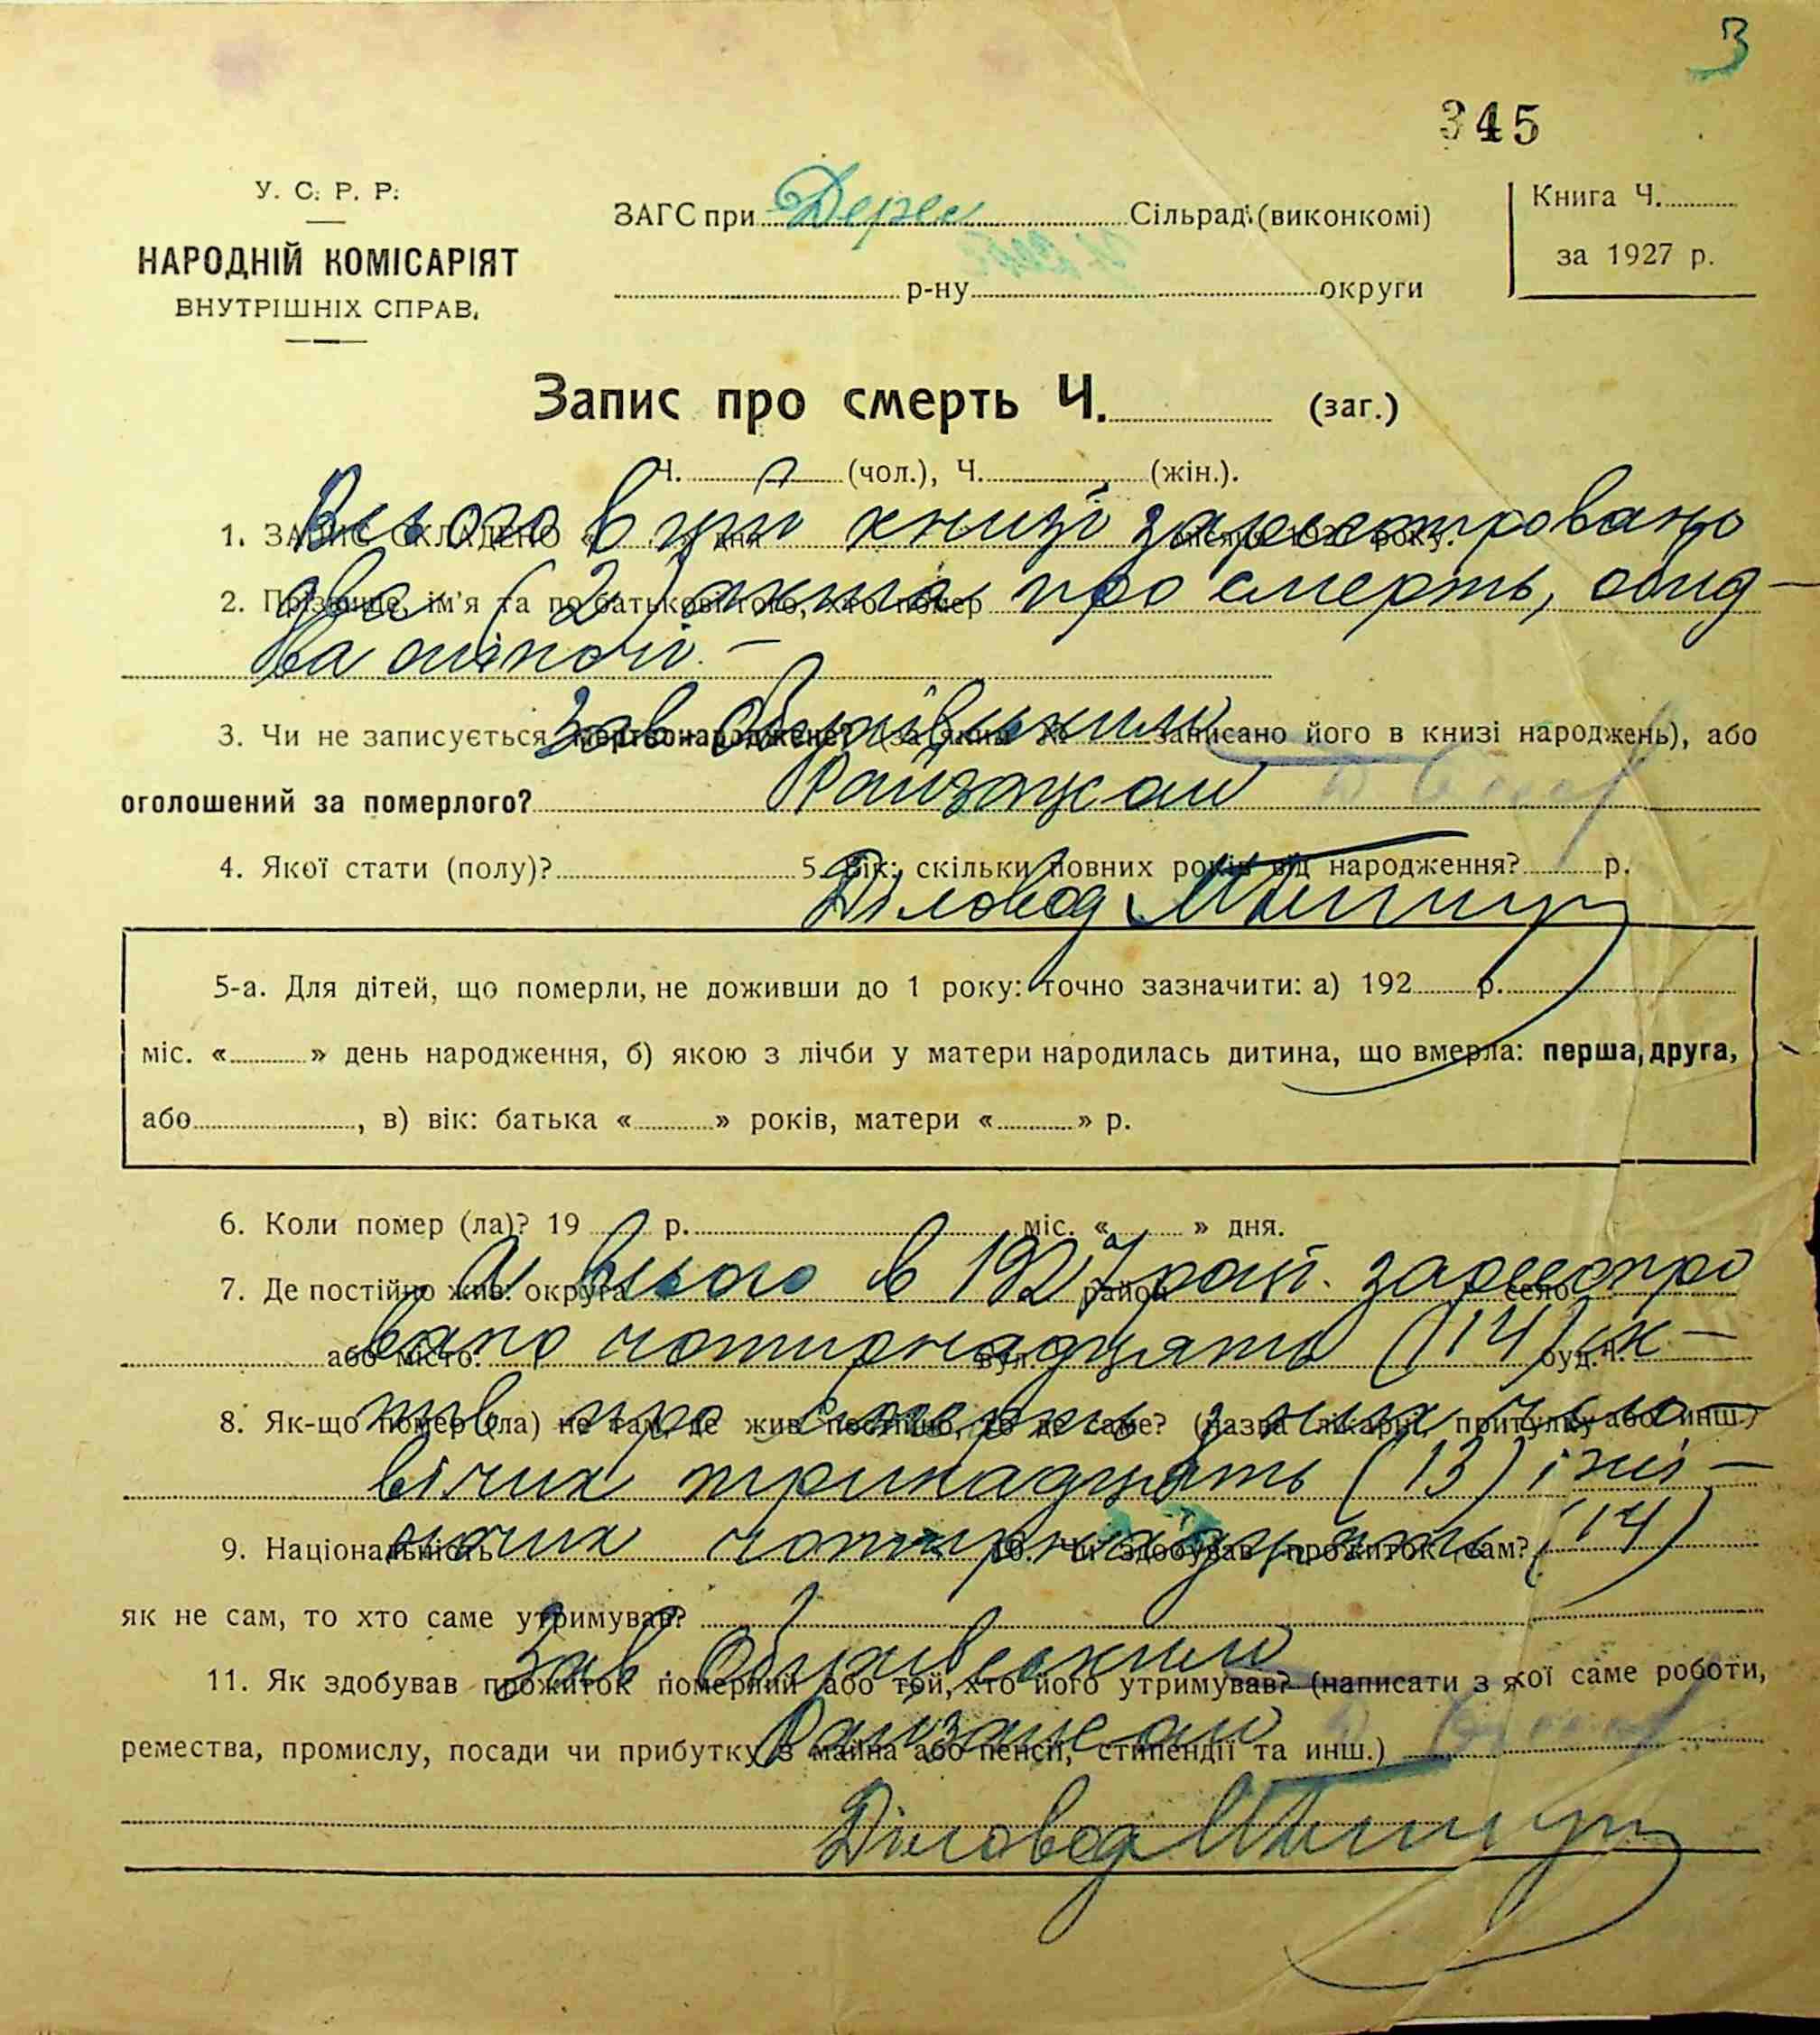 3
345
У. С. Р. Р.
НАРОДНІЙ КОМІСАРІЯТ
ВНУТРІШНІХ СПРАВ.
ЗАГС при Дерев Сільрад. (виконкомі)
р-ну округи
Книга Ч.
за 1927 р.
Запис про смерть Ч. (заг.)
Ч. (чол.), Ч. (жін.).
1. ЗАПИС СКЛАДЕНО « » дня місяця 192 року.
Всього в цій книзі зареєстровано
2. Прізвище, ім'я та по батькові того, хто помер
два (2) акта про смерть, обид-
ва жіночі. -
3. Чи не записується мертвонароджене? (за яким № записано його в книзі народжень), або
Зав. Обухівським
оголошений за померлого?
Райзагсом
4. Якої стати (полу)? 5. Вік: скільки повних років від народження? р.
Діловод
5-а. Для дітей, що померли, не доживши до 1 року: точно зазначити: а) 192 р.
міс. « » день народження, б) якою з лічби у матери народилась дитина, що вмерла: перша, друга,
або , в) вік: батька « » років, матери « » р.
6. Коли помер (ла)? 19 р. міс. « » дня.
А всього в 1927 році зареєстро
7. Де постійно жив: округа район село
вано чотирнадцять (14) ак-
або місто. вул. буд. Ч.
8. Як-що помер (ла) не там, де жив постійно, то де саме? (назва лікарні, притулку або инш.)
тів про смерть з них чоло-
вічих тринадцять (13) і жі-
9. Національність 10. Чи здобував прожиток сам?
ночих чотирнадцять (14)
як не сам, то хто саме утримував?
Зав. Обухівським
11. Як здобував прожиток померлий або той, хто його утримував? (написати з якої саме роботи,
ремества, промислу, посади чи прибутку з майна або пенсії, стипендії та инш.)
Райзагсом
Діловод